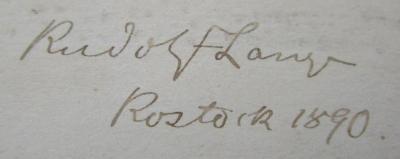 Rudolf Lange
Rostock 1890.